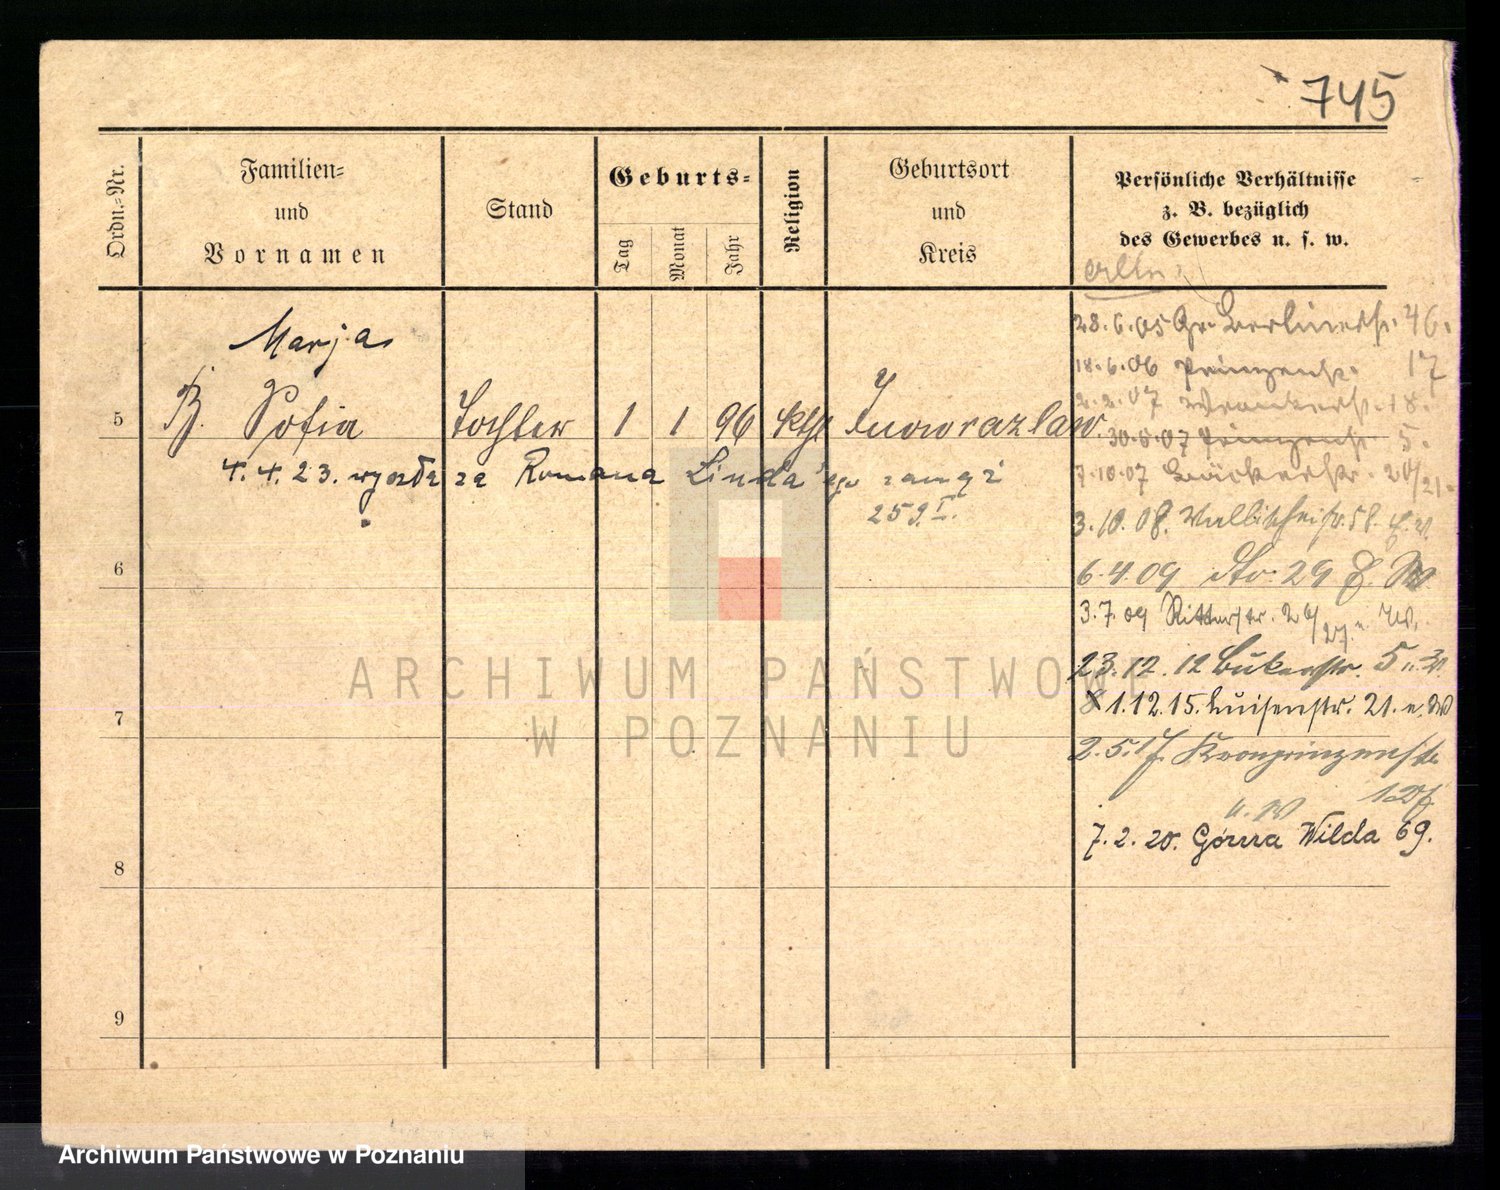 745
Ordn.-Nr.
Familien-
und
Vornamen
Stand
Geburts-
Tag
Monat
Jahr
Religion
Geburtsort
und
Kreis
Persönliche Verhältnisse
z. B. bezüglich
des Gewerbes u. s. w.
28.6.05 Gr. Berlinerstr. 46.
18.6.06 Prinzenstr. 17
Marja
2.2.07 18.
5 Sofia Tochter 1 1 96 kth Inowrazlaw.
30.6.07 Prinzenstr. 5.
4.4.23. wyszła za Romana Linda'ego
7.10.07 Bäckerstr. 20/21.
259 I.
3.10.08. Wallischeistr. 58.
6
6.4.09 29
3.7.09 Ritterstr. 24/27.
23.12.12 Bukerstr. 5 u. W.
7
1.12.15. Luisenstr. 21. u. W
2.5.17. Kronprinzenstr.
u. W
7.2.20. Górna Wilda 69.
8
9
ARCHIWUM PAŃSTWOWE
W POZNANIU
Archiwum Państwowe w Poznaniu